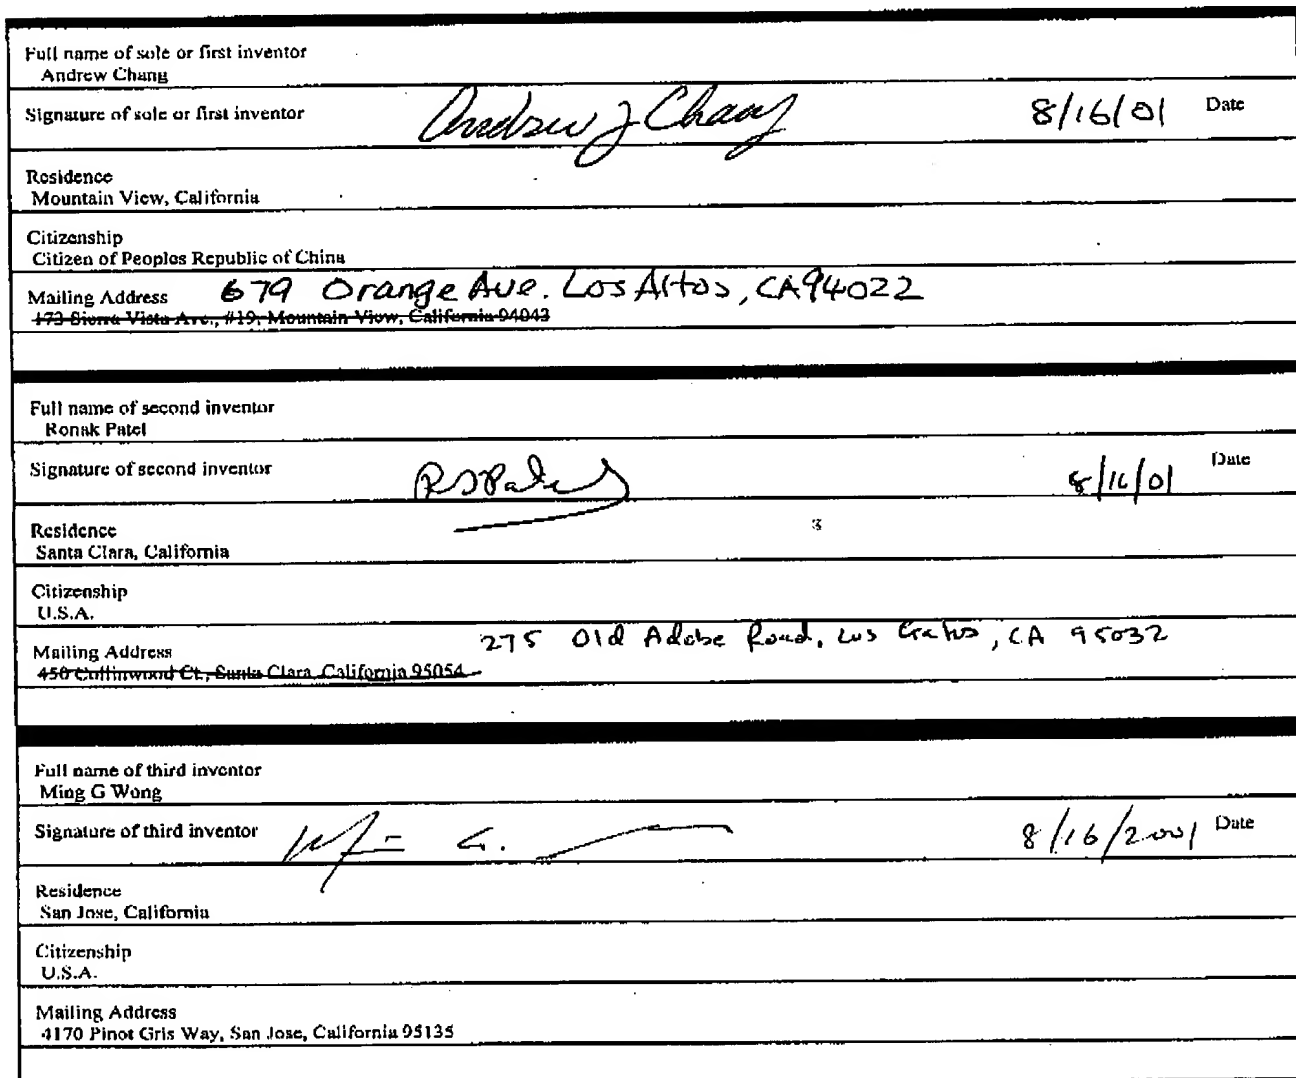 Full name of sole or first inventor
Andrew Chang
Signature of sole or first inventor Andrew J Chang 8/16/01 Date
Residence
Mountain View, California
Citizenship
Citizen of Peoples Republic of China
Mailing Address 679 Orange Ave. Los Altos, CA 94022
173 Sierra Vista Ave., #19, Mountain View, California 94043
Full name of second inventor
Ronak Patel
Signature of second inventor RSPatel 8/16/01 Date
Residence
Santa Clara, California
Citizenship
U.S.A.
Mailing Address 275 Old Adobe Road, Los Gatos, CA 95032
Santa Clara, California 95054
Full name of third inventor
Ming G Wong
Signature of third inventor G. 8/16/2001 Date
Residence
San Jose, California
Citizenship
U.S.A.
Mailing Address
4170 Pinot Gris Way, San Jose, California 95135